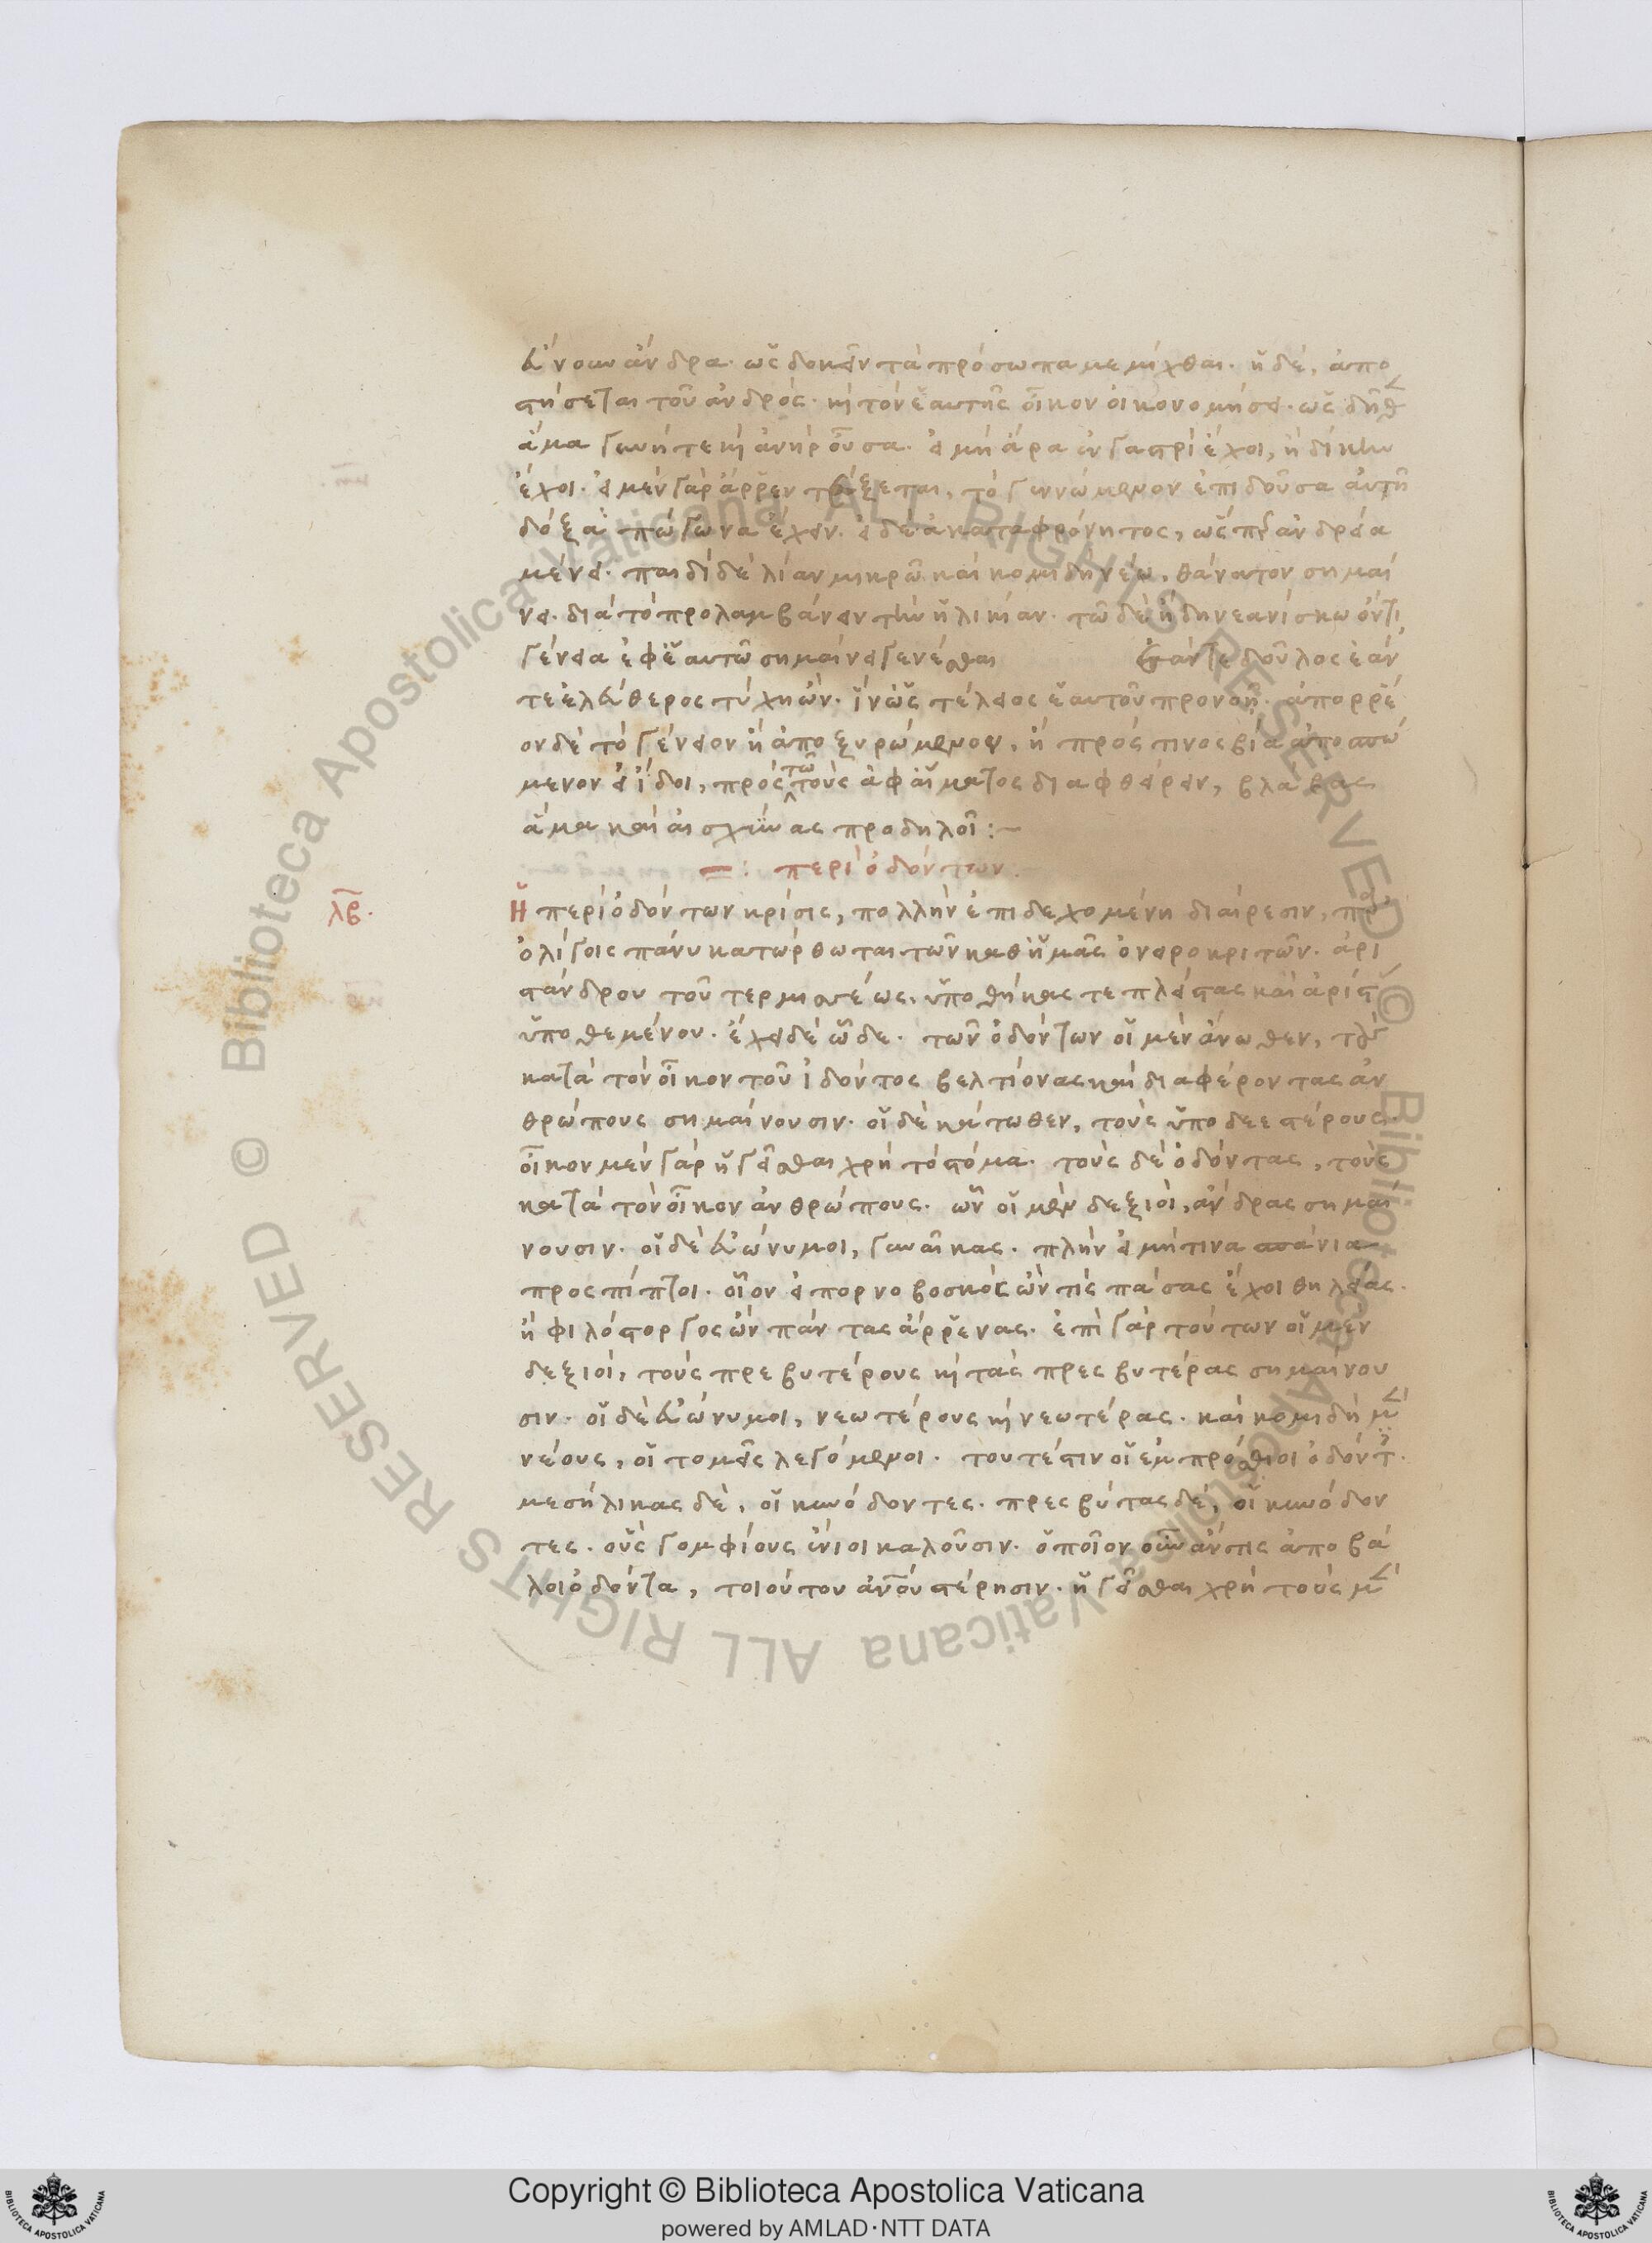 εύνουν άνδρα. ὡς δοκεῖν τὰ πρόσωπα μεμίχθαι. ἢ δὲ, ἀπο
στήσεται τοῦ ἀνδρός. κὶ τὸν ἑαυτῆς οἶκον οἰκονομήσει. ὡς δῆθ
ἅμα γυνή τε κὶ ἀνὴρ οὖσα. εἰ μὴ ἄρα ἐν γαστρὶ ἔχοι, ἢ δίκην
ἔχοι. εἰ μὲν γὰρ ἄρρεν τέξεται, τὸ γεννώμενον ἐπιδοῦσα αὐτῆ
δόξει πώγωνα ἔχειν. εἰ δὲ ἀκαταφρόνητος,
μένει. παιδὶ δὲ λίαν μικρῶ καὶ κομιδῆ νέω, θάνατον σημαί
νει. διὰ τὸ προλαμβάνειν τὴν ἡλικίαν. τῶ δὲ ἤδη νεανίσκω ὄντι
γένεια ἐφ' ἑαυτῶ σημαίνει γενέσθαι ἐάν τε δοῦλος ἐάν
τε ἐλεύθερος τύχη ὤν. ἵν' ὡς τέλειος ἑαυτοῦ προνοῆ. ἀπορρέ
ον δὲ τὸ γένειον ἢ ἀποξυρώμενον, ἢ πρός τινος βία ἀποσπώ
μενον εἰ ἴδοι, πρὸς τῶ τοὺς ἀφ' αἵματος διαφθείρειν, βλάβας
ἅμα καὶ αἰσχύνας προδηλοῖ :-
=: περὶ ὀδόντων.
λβ. Ἡ περὶ ὀδόντων κρίσις, πολλὴν ἐπιδεχομένη διαίρεσιν, πρὸς
ὀλίγοις πάνυ κατώρθωται τῶν καθ' ἡμᾶς ὀνειροκριτῶν. ἀρι
στάνδρου τοῦ τερμισέως. ὑποθήκας τε πλείστας καὶ ἀρίστ
ὑποθεμένου. ἔχει δὲ ὧδε. τῶν ὀδόντων οἱ μὲν ἄνωθεν, τοὺς
κατὰ τὸν οἶκον τοῦ ἰδόντος βελτίονας καὶ διαφέροντας ἀν
θρώπους σημαίνουσιν. οἱ δὲ κάτωθεν, τοὺς ὑποδεεστέρους.
οἶκον μὲν γὰρ ἡγεῖσθαι χρὴ τὸ στόμα. τοὺς δὲ ὀδόντας, τοὺς
κατὰ τὸν οἶκον ἀνθρώπους. ὧν οἱ μὲν δεξιοὶ, ἄνδρας σημαί
νουσιν. οἱ δὲ εὐώνυμοι, γυναῖκας. πλὴν εἰ μή τινα σπάνια
προσπίπτοι. οἷον εἰ πορνοβοσκὸς ὤν τις πάσας ἔχοι θηλείας.
ἢ φιλόστοργος ὢν πάντας ἄρρενας. ἐπὶ γὰρ τούτων οἱ μὲν
δεξιοὶ, τοὺς πρεβυτέρους κὶ τὰς πρεσβυτέρας σημαίνου
σιν. οἱ δὲ εὐώνυμοι, νεωτέρους κὶ νεωτέρας. καὶ κομιδῆ μὲν
νέους, οἱ τομεῖς λεγόμενοι. τουτέστιν οἱ ἐμπρόσθιοι ὀδόντες.
μεσήλικας δὲ, οἱ κυνόδοντες. πρεσβύτας δὲ, οἱ κυνόδον
τες. οὓς γομφίους ἔνιοι καλοῦσιν. ὁποῖον οὖν ἄν τις ἀποβά
λοι ὀδόντα, τοιούτου ἀνθρώπου στέρησιν. ἡγεῖσθαι χρὴ τοὺς μὲν